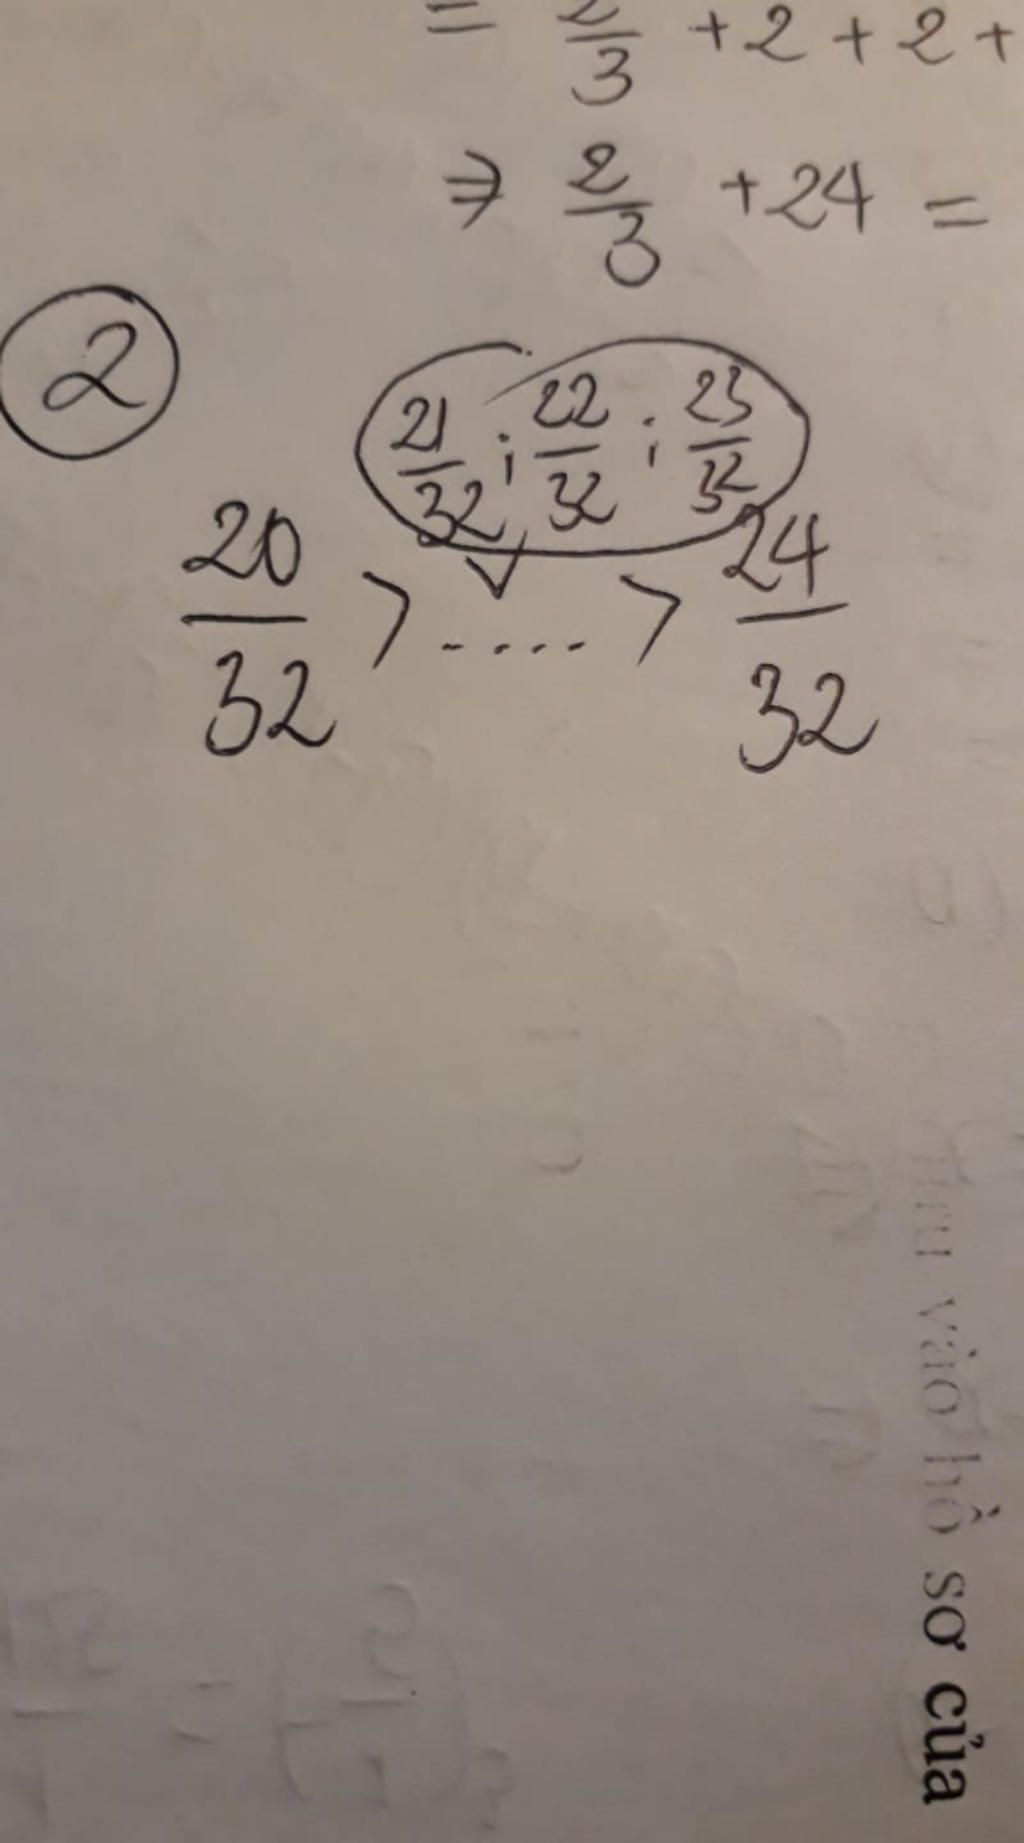 = 2/3 + 2 + 2 +
⇒ 2/3 + 24 =
2
21/32 ; 22/32 ; 23/32
20/32 > .... > 24/32
lưu vào hồ sơ của